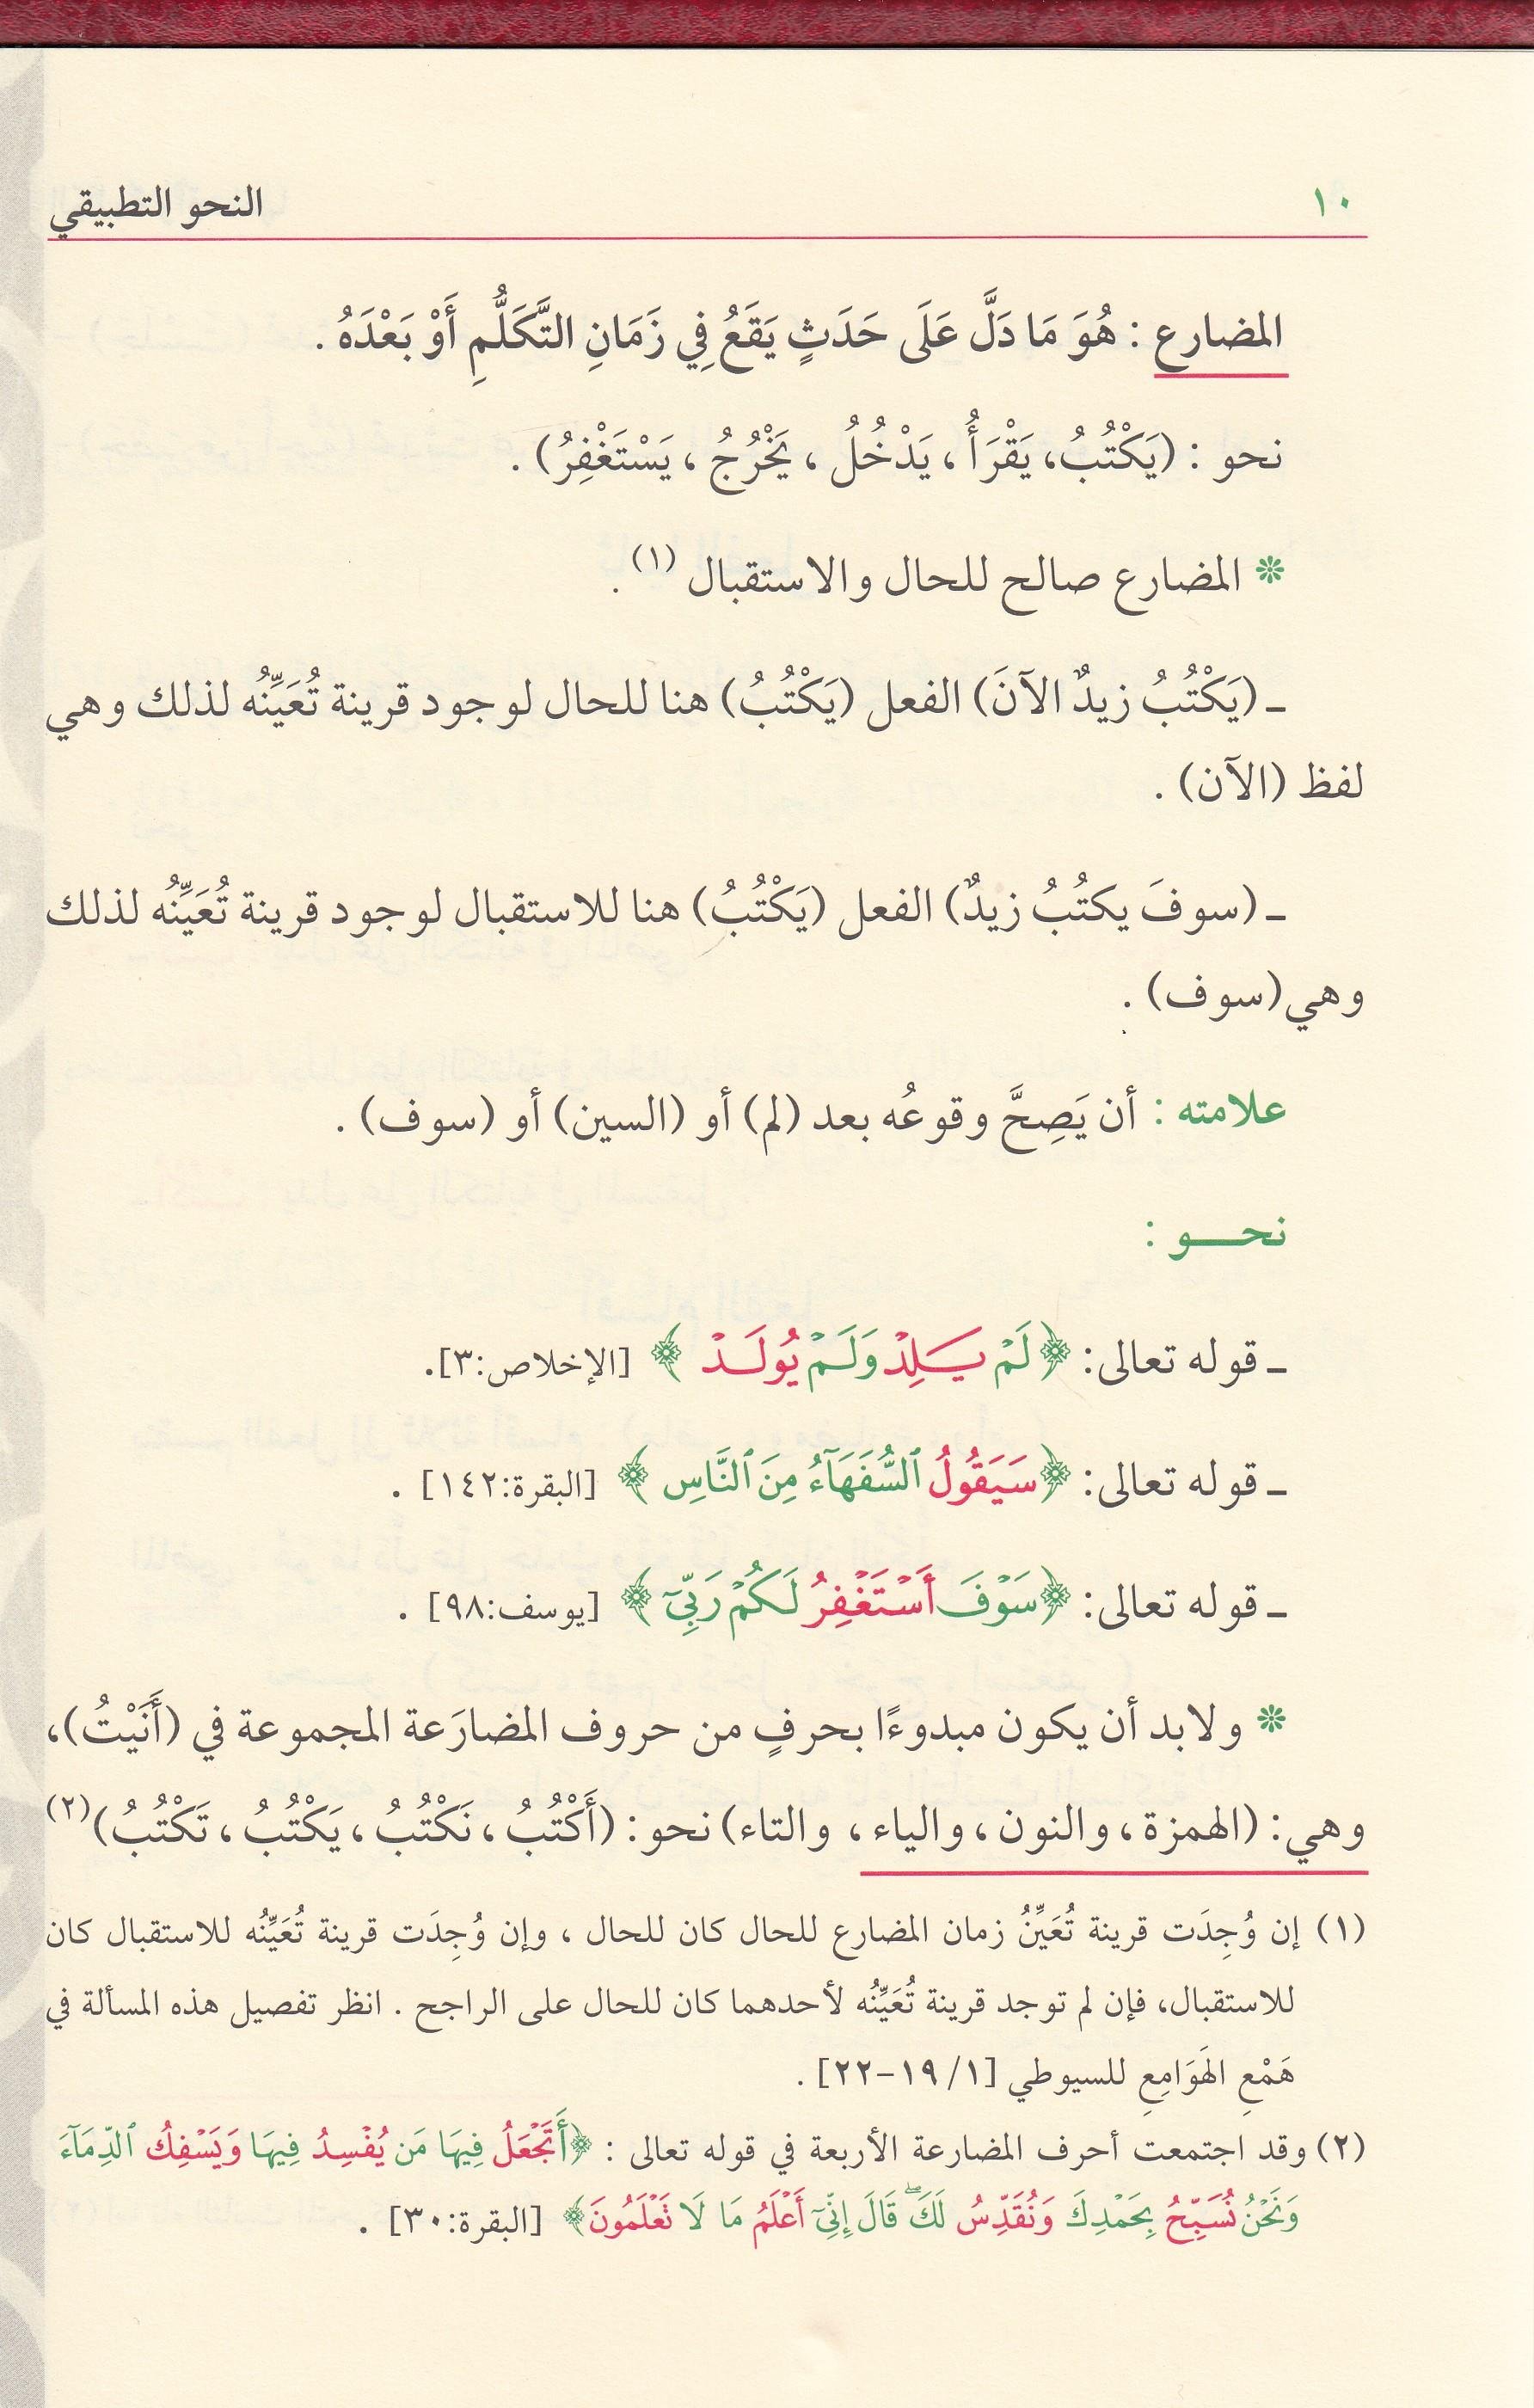 ١٠
النحو التطبيقي
المضارع : هُوَ مَا دَلَّ عَلَى حَدَثٍ يَقَعُ فِي زَمَانِ التَّكَلُّمِ أَوْ بَعْدَهُ .
نحو : (يَكْتُبُ، يَقْرَأُ ، يَدْخُلُ ، يَخْرُجُ ، يَسْتَغْفِرُ) .
❊ المضارع صالح للحال والاستقبال (١) .
ـ (يَكْتُبُ زيدٌ الآنَ) الفعل (يَكْتُبُ) هنا للحال لوجود قرينة تُعَيِّنُه لذلك وهي
لفظ (الآن) .
ـ (سوفَ يكتُبُ زيدٌ) الفعل (يَكْتُبُ) هنا للاستقبال لوجود قرينة تُعَيِّنُه لذلك
وهي (سوف) .
علامته : أن يَصِحَّ وقوعُه بعد (لم) أو (السين) أو (سوف) .
نحـــو :
ـ قوله تعالى: ﴿لَمْ يَلِدْ وَلَمْ يُولَدْ﴾ [الإخلاص:٣].
ـ قوله تعالى: ﴿سَيَقُولُ ٱلسُّفَهَآءُ مِنَ ٱلنَّاسِ﴾ [البقرة:١٤٢] .
ـ قوله تعالى: ﴿سَوْفَ أَسْتَغْفِرُ لَكُمْ رَبِّىٓ﴾ [يوسف:٩٨] .
❊ ولابد أن يكون مبدوءًا بحرفٍ من حروف المضارَعة المجموعة في (أَنَيْتُ)،
وهي: (الهمزة ، والنون ، والياء ، والتاء) نحو : (أَكْتُبُ ، نَكْتُبُ ، يَكْتُبُ ، تَكْتُبُ)(٢)
(١) إن وُجِدَت قرينة تُعَيِّنُ زمان المضارع للحال كان للحال ، وإن وُجِدَت قرينة تُعَيِّنُه للاستقبال كان
للاستقبال، فإن لم توجد قرينة تُعَيِّنُه لأحدهما كان للحال على الراجح . انظر تفصيل هذه المسألة في
هَمْعِ الهَوَامِعِ للسيوطي [١/ ١٩-٢٢] .
(٢) وقد اجتمعت أحرف المضارعة الأربعة في قوله تعالى : ﴿أَتَجْعَلُ فِيهَا مَن يُفْسِدُ فِيهَا وَيَسْفِكُ ٱلدِّمَآءَ
وَنَحْنُ نُسَبِّحُ بِحَمْدِكَ وَنُقَدِّسُ لَكَ ۖ قَالَ إِنِّىٓ أَعْلَمُ مَا لَا تَعْلَمُونَ﴾ [البقرة:٣٠] .